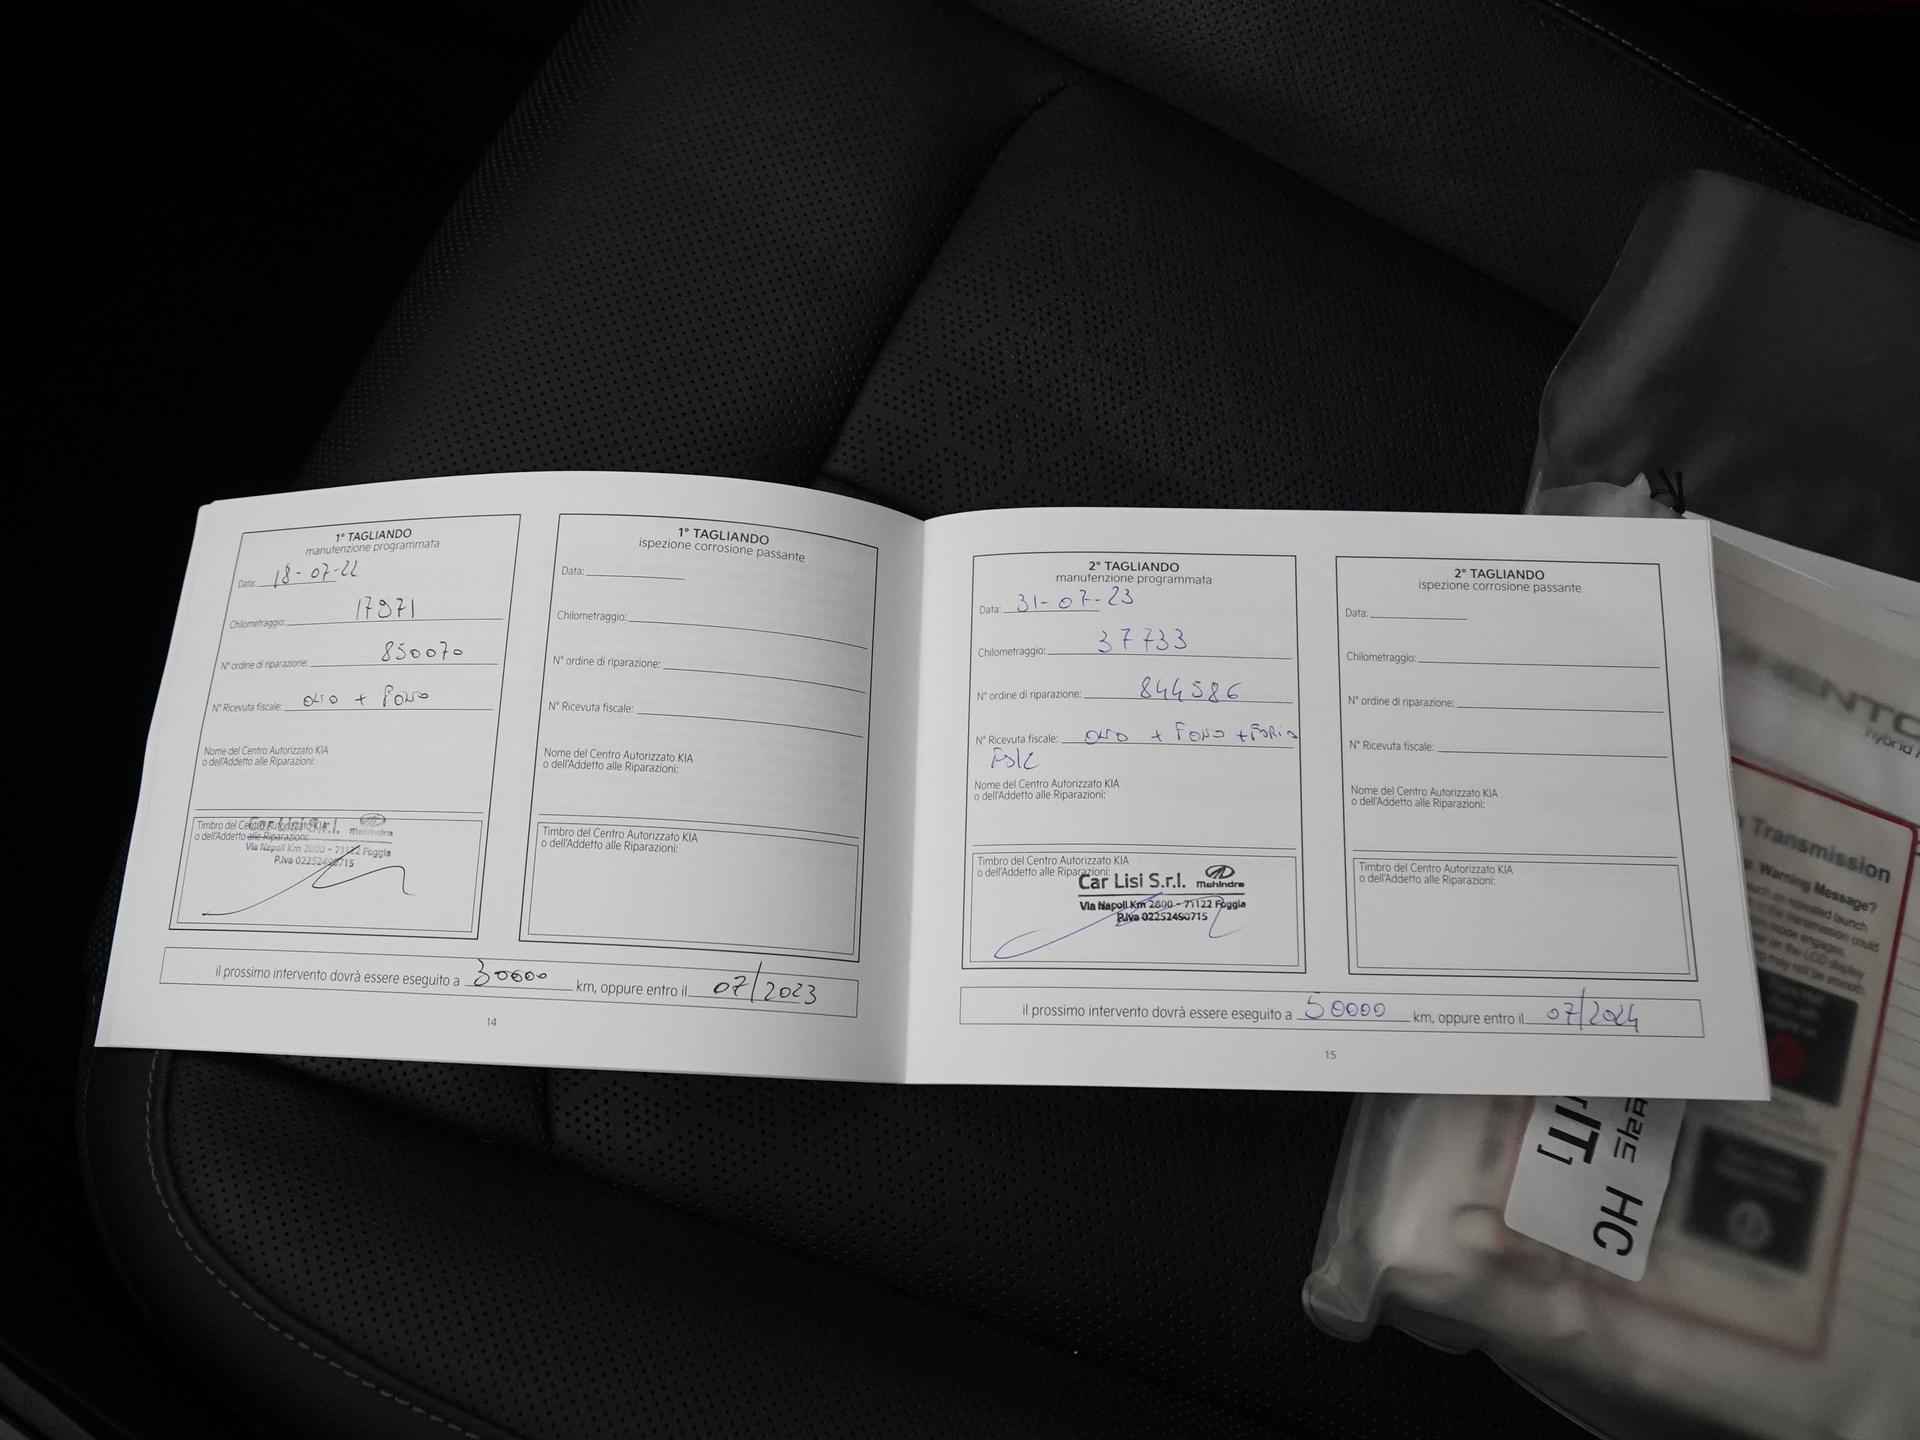 1° TAGLIANDO
manutenzione programmata
Data: 18-07-22
Chilometraggio: 17971
N° ordine di riparazione: 850070
N° Ricevuta fiscale: OLIO +
Nome del Centro Autorizzato KIA
o dell'Addetto alle Riparazioni:
Timbro del Centro Autorizzato KIA
o dell'Addetto alle Riparazioni:
Car Lisi S.r.l. Mahindra
Via Napoli Km 2800 - 71122 Foggia
P.Iva 02252490715
1° TAGLIANDO
ispezione corrosione passante
Data:
Chilometraggio:
N° ordine di riparazione:
N° Ricevuta fiscale:
Nome del Centro Autorizzato KIA
o dell'Addetto alle Riparazioni:
Timbro del Centro Autorizzato KIA
o dell'Addetto alle Riparazioni:
il prossimo intervento dovrà essere eseguito a 30000 km, oppure entro il 07/2023
14
2° TAGLIANDO
manutenzione programmata
Data: 31-07-23
Chilometraggio: 37733
N° ordine di riparazione: 844586
N° Ricevuta fiscale: OLIO +
Nome del Centro Autorizzato KIA
o dell'Addetto alle Riparazioni:
Timbro del Centro Autorizzato KIA
o dell'Addetto alle Riparazioni:
Car Lisi S.r.l. Mahindra
Via Napoli Km 2800 - 71122 Foggia
P.Iva 02252490715
2° TAGLIANDO
ispezione corrosione passante
Data:
Chilometraggio:
N° ordine di riparazione:
N° Ricevuta fiscale:
Nome del Centro Autorizzato KIA
o dell'Addetto alle Riparazioni:
Timbro del Centro Autorizzato KIA
o dell'Addetto alle Riparazioni:
il prossimo intervento dovrà essere eseguito a 50000 km, oppure entro il 07/2024
15
hybrid
Transmission
Warning Message?
HC